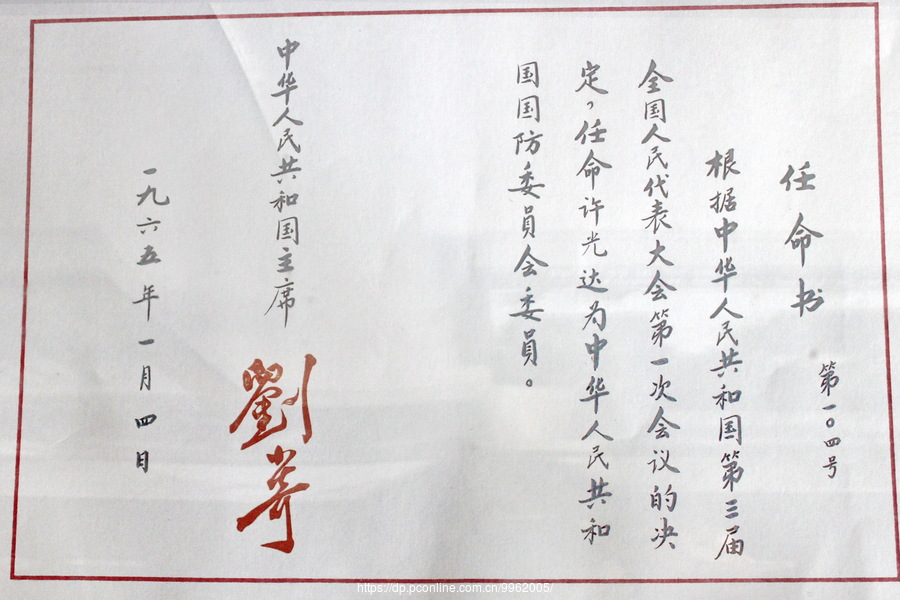 任命书
第一〇四号
根据中华人民共和国第三届
全国人民代表大会第一次会议的决
定，任命许光达为中华人民共和
国国防委员会委员。
中华人民共和国主席
劉少奇
一九六五年一月四日
https://dp.pconline.com.cn/9962005/